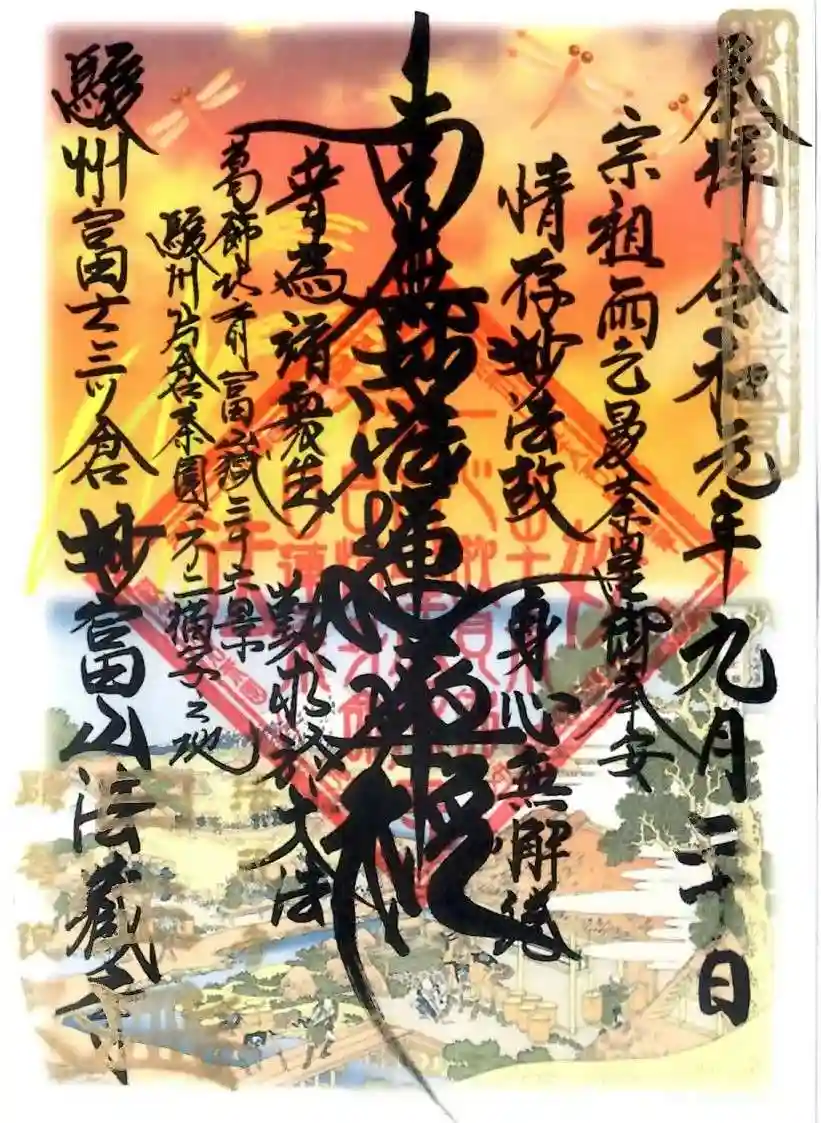 奉拝 令和元年九月三十日
宗祖両乞曼荼羅御奉安
情存妙法故 身心無懈倦
南無妙法蓮華経
普為諸衆生 勤求於大法
葛飾北斎 富嶽三十六景
駿州片倉茶園ノ不二 猫子之地
駿州富士三ツ倉 妙富山法蔵寺